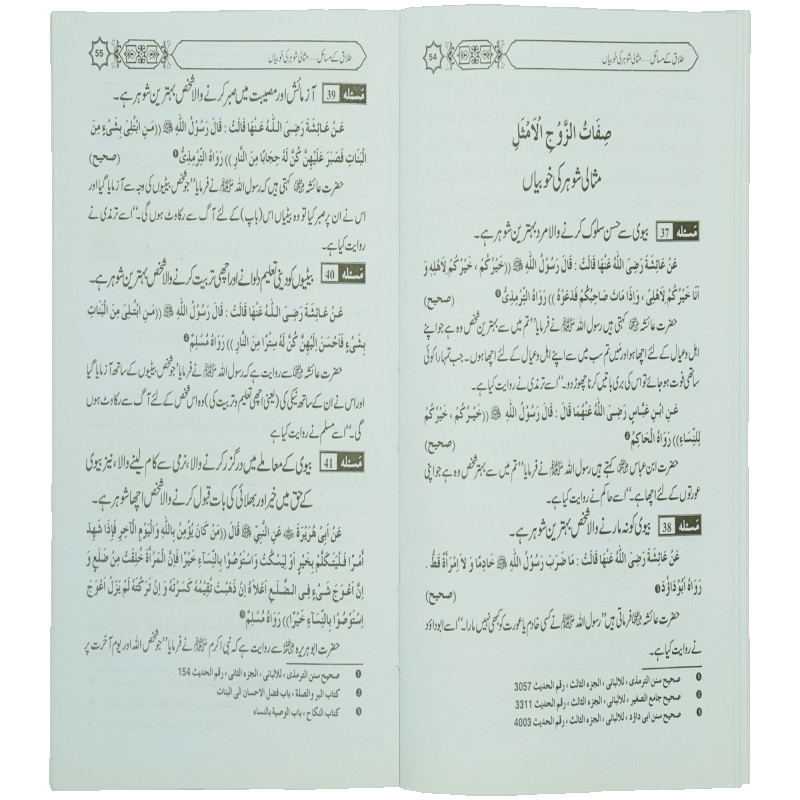 54 طلاق کے مسائل.... مثالی شوہر کی خوبیاں
صِفَاتُ الزَّوْجِ الْاَمْثَلِ
مثالی شوہر کی خوبیاں
مَسئله 37 بیوی سے حسن سلوک کرنے والا مرد بہترین شوہر ہے۔
عَنْ عَائِشَةَ رَضِىَ اللّٰهُ عَنْهَا قَالَتْ : قَالَ رَسُوْلُ اللّٰهِ ﷺ ((خَيْرُكُمْ ، خَيْرُكُمْ لِاَهْلِهٖ وَ
اَنَا خَيْرُكُمْ لِاَهْلِىْ ، وَاِذَا مَاتَ صَاحِبُكُمْ فَدَعُوْهُ )) رَوَاهُ التِّرْمِذِىُّ ❶ (صحيح)
حضرت عائشہ رضی اللہ عنہا کہتی ہیں رسول اللہ ﷺ نے فرمایا "تم میں سے بہترین شخص وہ ہے جو اپنے
اہل وعیال کے لئے اچھا ہو اور میں تم سب میں سے اپنے اہل وعیال کے لئے اچھا ہوں۔ جب تمہارا کوئی
ساتھی فوت ہو جائے تو اس کی بری باتیں کرنا چھوڑ دو۔" اسے ترمذی نے روایت کیا ہے۔
عَنِ ابْنِ عَبَّاسٍ رَضِىَ اللّٰهُ عَنْهُمَا قَالَ : قَالَ رَسُوْلُ اللّٰهِ ﷺ ((خَيْرُكُمْ ، خَيْرُكُمْ
لِلنِّسَاءِ)) رَوَاهُ الْحَاكِمُ ❷ (صحيح)
حضرت ابن عباس رضی اللہ عنہما کہتے ہیں رسول اللہ ﷺ نے فرمایا "تم میں سے بہتر شخص وہ ہے جو اپنی
عورتوں کے لئے اچھا ہے۔" اسے حاکم نے روایت کیا ہے۔
مَسئله 38 بیوی کو نہ مارنے والا شخص بہترین شوہر ہے۔
عَنْ عَائِشَةَ رَضِىَ اللّٰهُ عَنْهَا قَالَتْ : مَا ضَرَبَ رَسُوْلُ اللّٰهِ ﷺ خَادِمًا وَ لاَ اِمْرَاَةً قَطُّ .
رَوَاهُ اَبُوْدَاوُدَ ❸ (صحيح)
حضرت عائشہ رضی اللہ عنہا فرماتی ہیں "رسول اللہ ﷺ نے کسی خادم یا عورت کو کبھی نہیں مارا۔" اسے ابوداؤد
نے روایت کیا ہے۔
❶ صحيح سنن الترمذى ، للالبانى ، الجزء الثالث ، رقم الحديث 3057
❷ صحيح جامع الصغير ، للالبانى ، الجزء الثالث ، رقم الحديث 3311
❸ صحيح سنن ابى داؤد ، للالبانى ، الجزء الثالث ، رقم الحديث 4003
55 طلاق کے مسائل.... مثالی شوہر کی خوبیاں
مَسئله 39 آزمائش اور مصیبت میں صبر کرنے والا شخص بہترین شوہر ہے۔
عَنْ عَائِشَةَ رَضِىَ اللّٰهُ عَنْهَا قَالَتْ : قَالَ رَسُوْلُ اللّٰهِ ﷺ ((مَنِ ابْتُلِىَ بِشَىْءٍ مِنَ
الْبَنَاتِ فَصَبَرَ عَلَيْهِنَّ كُنَّ لَهٗ حِجَابًا مِنَ النَّارِ )) رَوَاهُ التِّرْمِذِىُّ ❶ (صحيح)
حضرت عائشہ رضی اللہ عنہا کہتی ہیں کہ رسول اللہ ﷺ نے فرمایا "جو شخص بیٹیوں کی وجہ سے آزمایا گیا اور
اس نے ان پر صبر کیا تو وہ بیٹیاں اس (باپ) کے لئے آگ سے رکاوٹ ہوں گی۔" اسے ترمذی نے
روایت کیا ہے۔
مَسئله 40 بیٹیوں کو دینی تعلیم دلوانے اور اچھی تربیت کرنے والا شخص بہترین شوہر ہے۔
عَنْ عَائِشَةَ رَضِىَ اللّٰهُ عَنْهَا قَالَتْ : قَالَ رَسُوْلُ اللّٰهِ ﷺ ((مَنِ ابْتُلِىَ مِنَ الْبَنَاتِ
بِشَىْءٍ فَاَحْسَنَ اِلَيْهِنَّ كُنَّ لَهٗ سِتْرًا مِنَ النَّارِ )) رَوَاهُ مُسْلِمٌ ❷
حضرت عائشہ رضی اللہ عنہا سے روایت ہے کہ رسول اللہ ﷺ نے فرمایا "جو شخص بیٹیوں کے ساتھ آزمایا گیا
اور اس نے ان کے ساتھ نیکی کی (یعنی اچھی تعلیم و تربیت کی) وہ اس شخص کے لئے آگ سے رکاوٹ ہوں
گی۔" اسے مسلم نے روایت کیا ہے
مَسئله 41 بیوی کے معاملے میں درگزر کرنے والا، نرمی سے کام لینے والا، نیز بیوی
کے حق میں خیر اور بھلائی کی بات قبول کرنے والا شخص اچھا شوہر ہے۔
عَنْ اَبِىْ هُرَيْرَةَ ﷺ عَنِ النَّبِىِّ ﷺ قَالَ ((مَنْ كَانَ يُؤْمِنُ بِاللّٰهِ وَالْيَوْمِ الْآخِرِ فَاِذَا شَهِدَ
اَمْرًا فَلْيَتَكَلَّمْ بِخَيْرٍ اَوْ لِيَسْكُتْ وَاسْتَوْصُوْا بِالنِّسَاءِ خَيْرًا فَاِنَّ الْمَرْاَةَ خُلِقَتْ مِنْ ضِلَعٍ وَ
اِنَّ اَعْوَجَ شَىْءٍ فِى الضِّلَعِ اَعْلاَهُ اِنْ ذَهَبْتَ تُقِيْمُهٗ كَسَرْتَهٗ وَ اِنْ تَرَكْتَهٗ لَمْ يَزَلْ اَعْوَجَ
اِسْتَوْصُوْا بِالنِّسَاءِ خَيْرًا)) رَوَاهُ مُسْلِمٌ ❸
حضرت ابوہریرہ رضی اللہ عنہ سے روایت ہے کہ نبی اکرم ﷺ نے فرمایا "جو شخص اللہ اور یوم آخرت پر
❶ صحيح سنن الترمذى ، للالبانى ، الجزء الثانى ، رقم الحديث 154
❷ كتاب البر والصلة ، باب فضل الاحسان الى البنات
❸ كتاب النكاح ، باب الوصية بالنساء